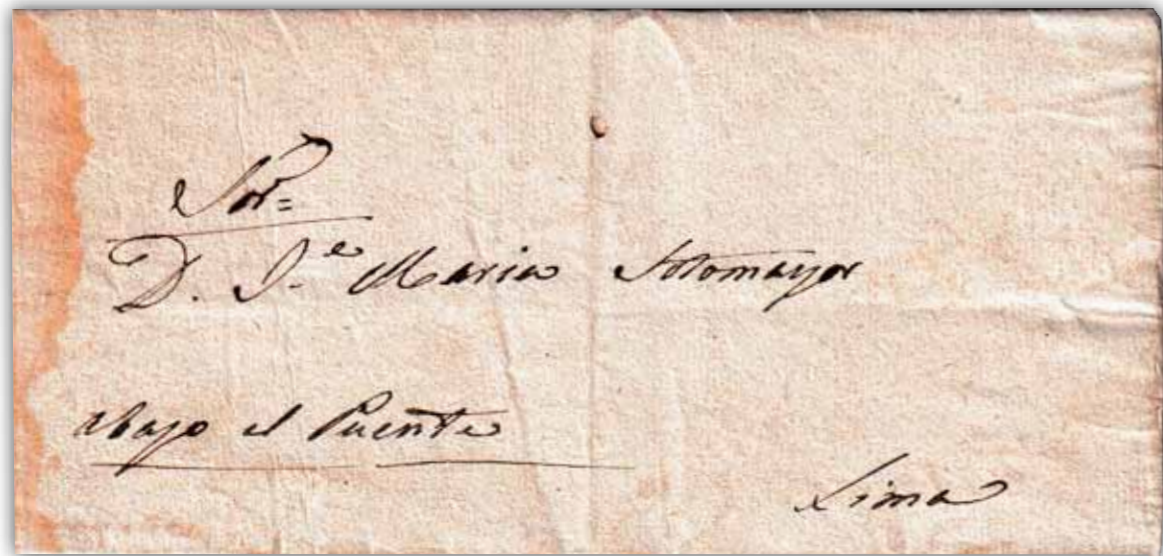 Sor=
D. J.e Maria Sotomayor
abajo el Puente
Lima